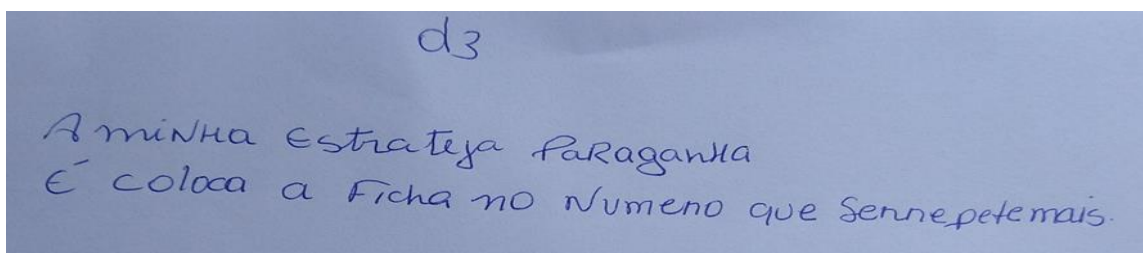 d3
A miNHa EstrateJa PaRaganHa
É coloca a Ficha no Numeno que Sennepetemais.